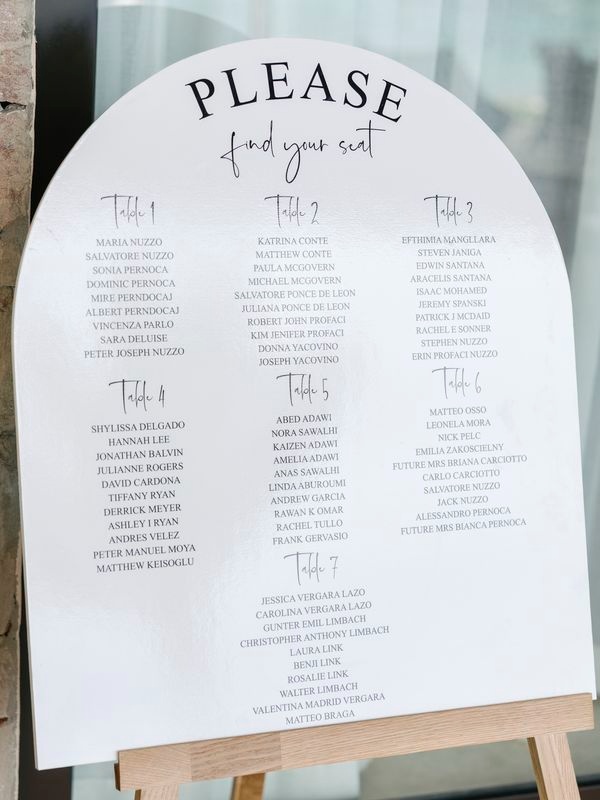 PLEASE
find your seat
Table 1
MARIA NUZZO
SALVATORE NUZZO
SONIA PERNOCA
DOMINIC PERNOCA
MIRE PERNDOCAJ
ALBERT PERNDOCAJ
VINCENZA PARLO
SARA DELUISE
PETER JOSEPH NUZZO
Table 2
KATRINA CONTE
MATTHEW CONTE
PAULA MCGOVERN
MICHAEL MCGOVERN
SALVATORE PONCE DE LEON
JULIANA PONCE DE LEON
ROBERT JOHN PROFACI
KIM JENIFER PROFACI
DONNA YACOVINO
JOSEPH YACOVINO
Table 3
EFTHIMIA MANGLLARA
STEVEN JANIGA
EDWIN SANTANA
ARACELIS SANTANA
ISAAC MOHAMED
JEREMY SPANSKI
PATRICK J MCDAID
RACHEL E SONNER
STEPHEN NUZZO
ERIN PROFACI NUZZO
Table 4
SHYLISSA DELGADO
HANNAH LEE
JONATHAN BALVIN
JULIANNE ROGERS
DAVID CARDONA
TIFFANY RYAN
DERRICK MEYER
ASHLEY I RYAN
ANDRES VELEZ
PETER MANUEL MOYA
MATTHEW KEISOGLU
Table 5
ABED ADAWI
NORA SAWALHI
KAIZEN ADAWI
AMELIA ADAWI
ANAS SAWALHI
LINDA ABUROUMI
ANDREW GARCIA
RAWAN K OMAR
RACHEL TULLO
FRANK GERVASIO
Table 6
MATTEO OSSO
LEONELA MORA
NICK PELC
EMILIA ZAKOSCIELNY
FUTURE MRS BRIANA CARCIOTTO
CARLO CARCIOTTO
SALVATORE NUZZO
JACK NUZZO
ALESSANDRO PERNOCA
FUTURE MRS BIANCA PERNOCA
Table 7
JESSICA VERGARA LAZO
CAROLINA VERGARA LAZO
GUNTER EMIL LIMBACH
CHRISTOPHER ANTHONY LIMBACH
LAURA LINK
BENJI LINK
ROSALIE LINK
WALTER LIMBACH
VALENTINA MADRID VERGARA
MATTEO BRAGA